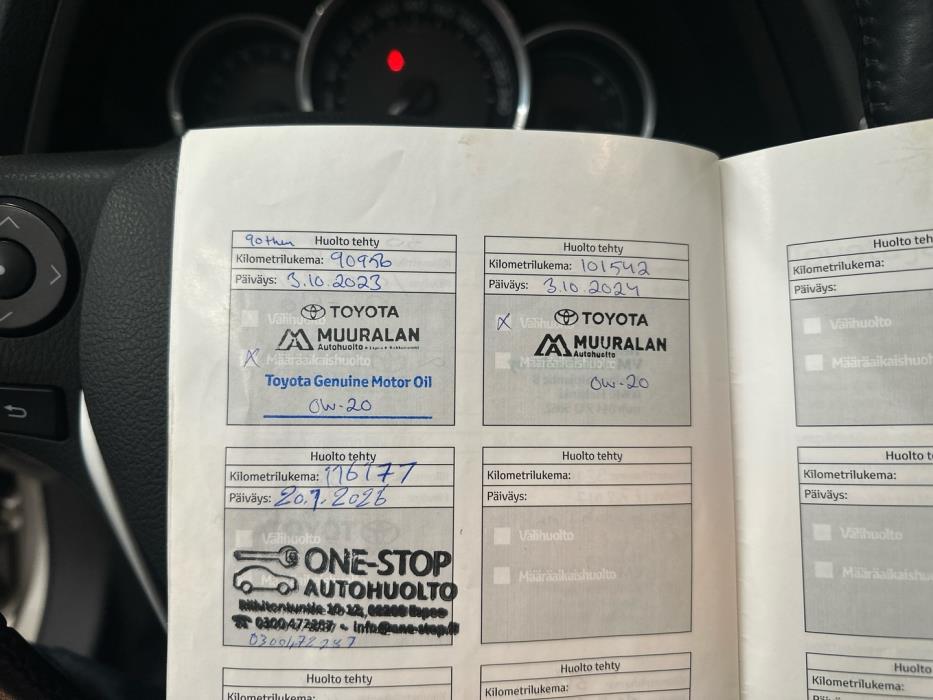 90 tkm Huolto tehty
Kilometrilukema: 90956
Päiväys: 3.10.2023
Välihuolto
TOYOTA
MUURALAN
Autohuolto
X Määräaikaishuolto
Toyota Genuine Motor Oil
0W-20
Huolto tehty
Kilometrilukema: 101542
Päiväys: 3.10.2024
X Välihuolto
TOYOTA
MUURALAN
Autohuolto
Määräaikaishuolto
0W-20
Huolto teh
Kilometrilukema:
Päiväys:
Välihuolto
Määräaikaishuol
Huolto tehty
Kilometrilukema: 116177
Päiväys: 20.1.2026
Välihuolto
ONE-STOP
AUTOHUOLTO
10-12, 02200 Espoo
0300 472287 - info@one-stop.fi
0300472287
Huolto tehty
Kilometrilukema:
Päiväys:
Välihuolto
Määräaikaishuolto
Huolto t
Kilometrilukema:
Päiväys:
Välihuolto
Määräaikaishu
Huolto tehty
Kilometrilukema:
Huolto tehty
Kilometrilukema:
Huolto
Kilometrilukema: